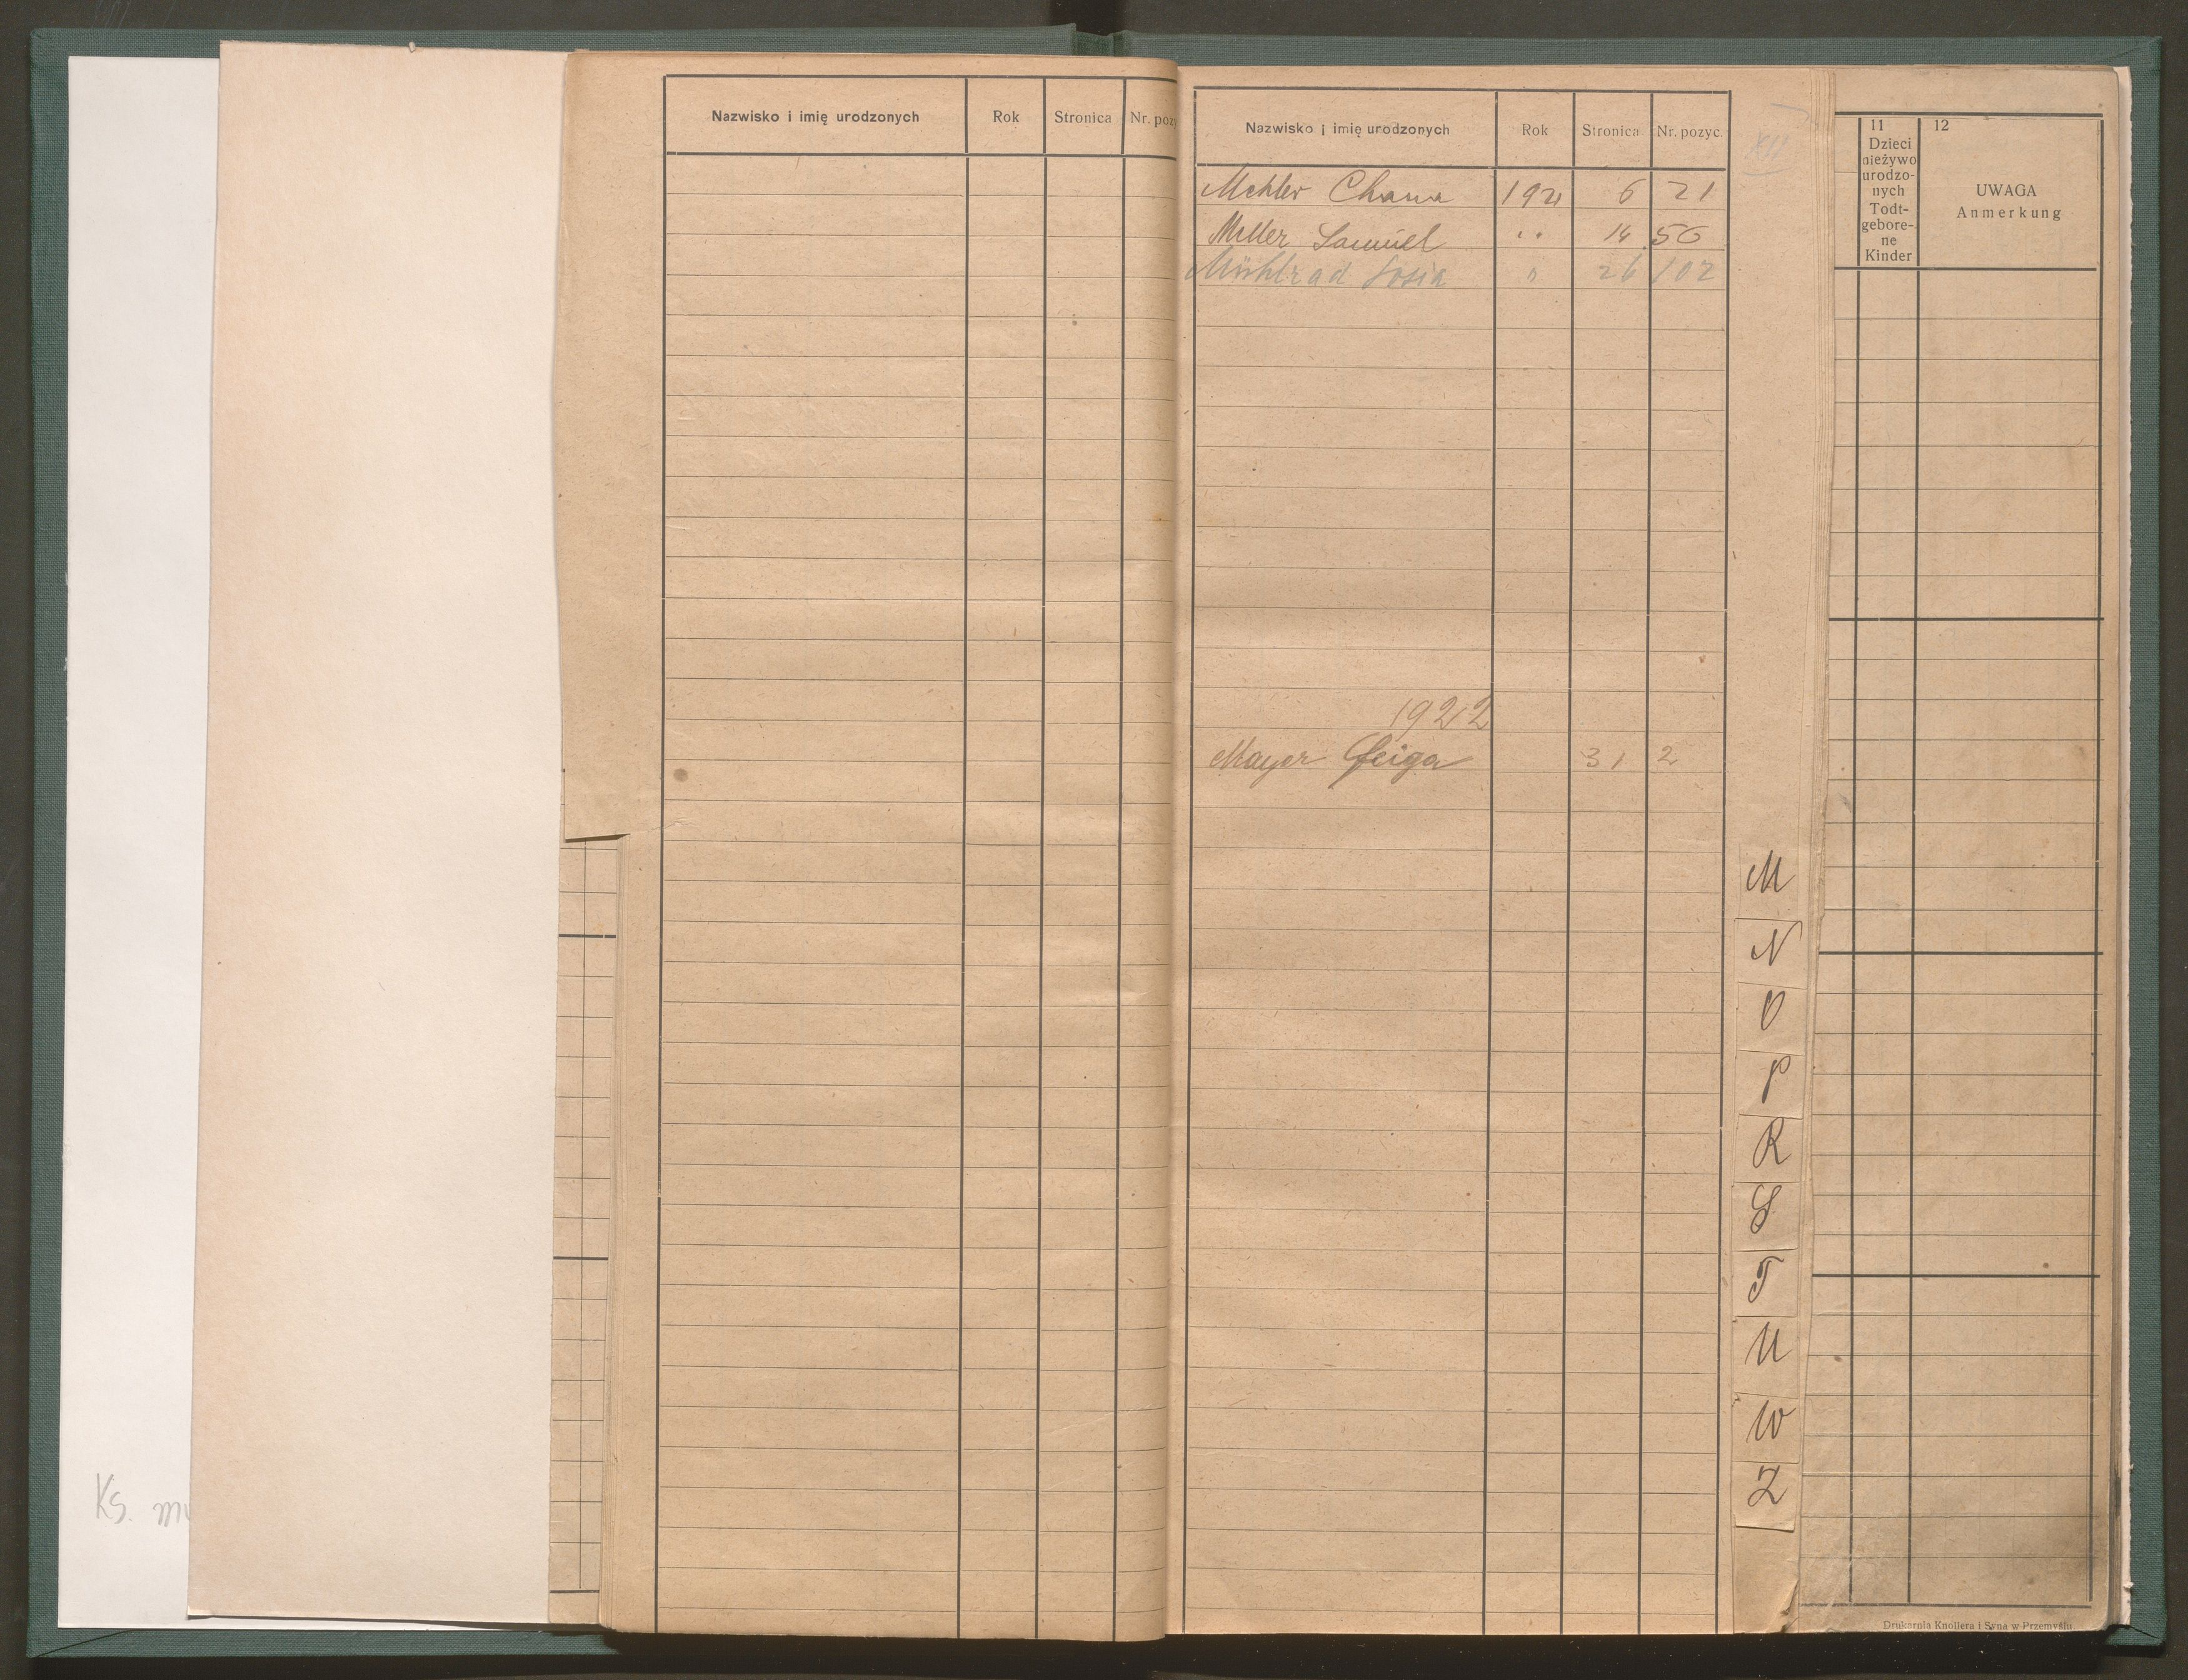 Nazwisko i imię urodzonych Rok Stronica Nr. poz
Nazwisko i imię urodzonych Rok Stronica Nr. pozyc.
XII
Mehler Chana 1921 6 21
Meller Samuel " 14 50
Mühlrad Sosia " 26 102
1922
Mayer Feiga 31 2
M
N
O
P
R
S
T
U
W
Z
11
Dzieci
nieżywo
urodzo-
nych
Todt-
gebore-
ne
Kinder
12
UWAGA
Anmerkung
Ks.
Drukarnia Knollera i Syna w Przemyślu.